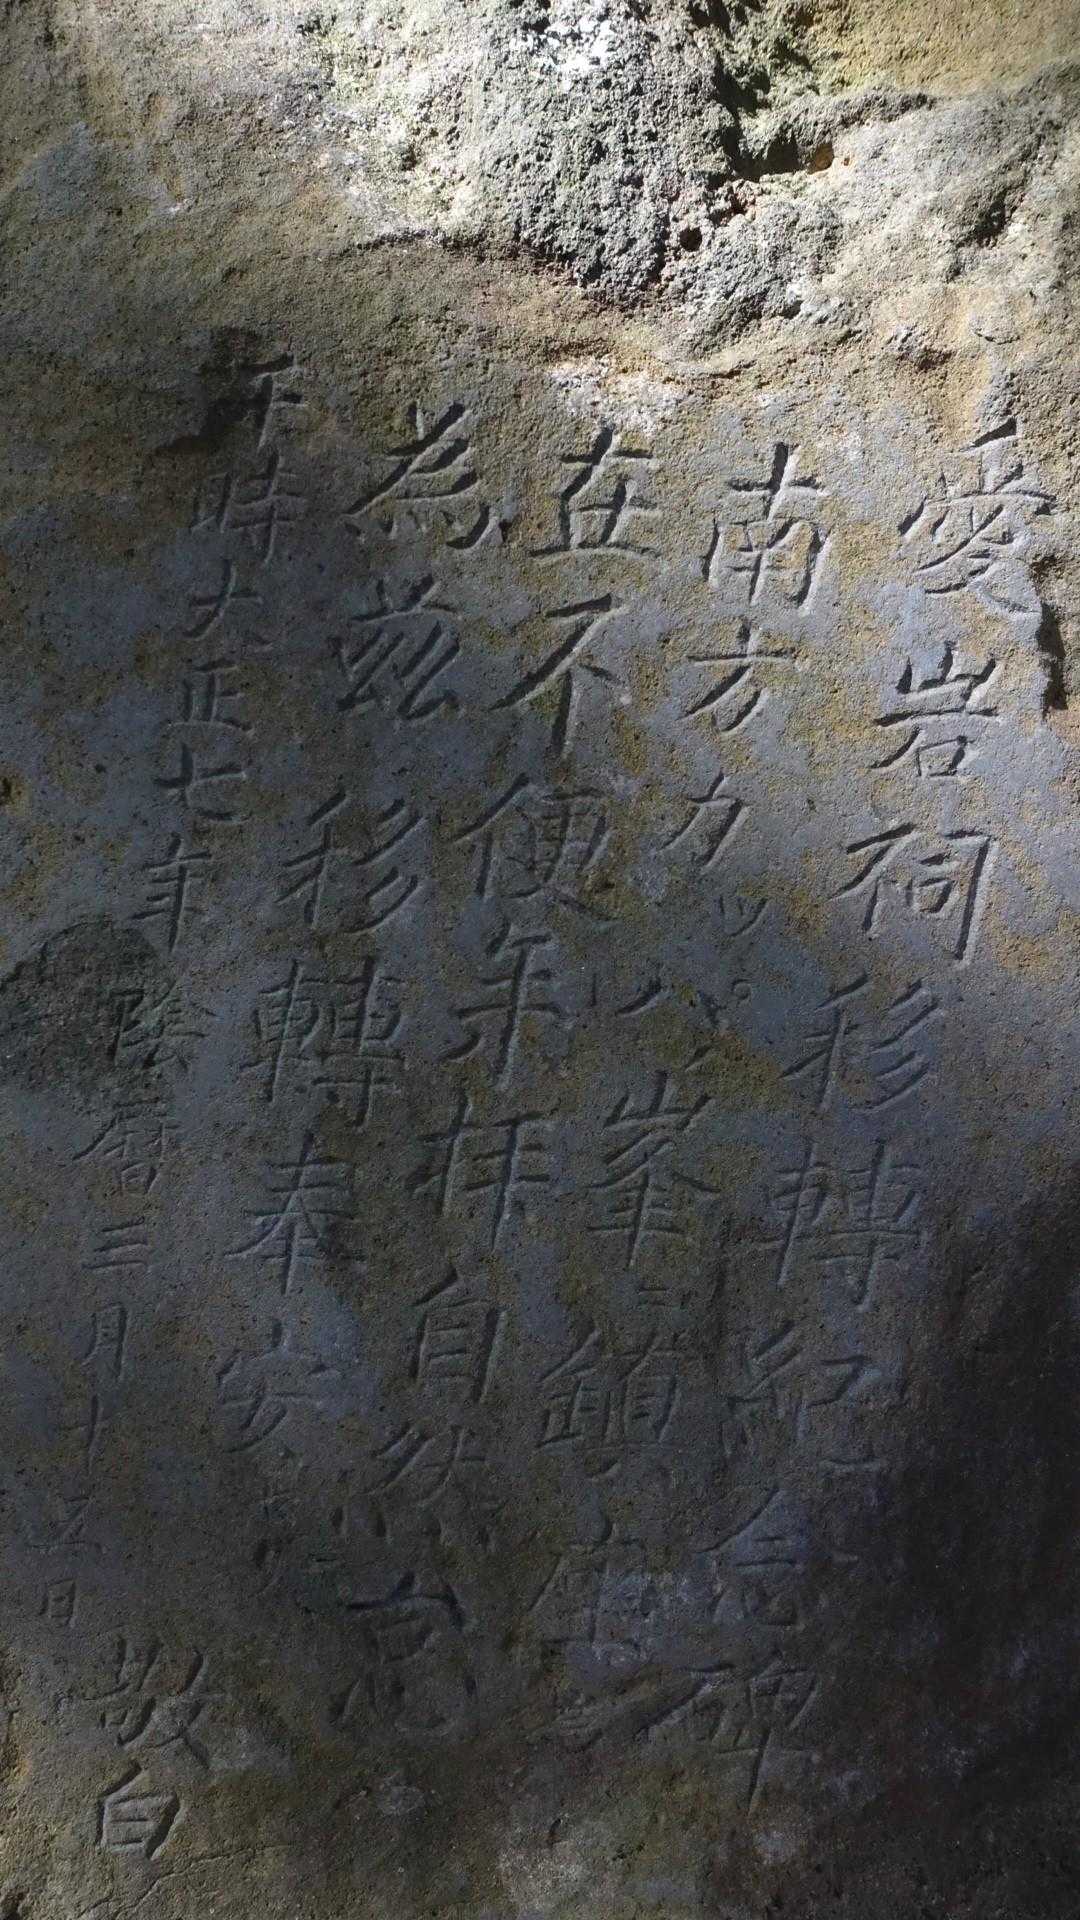 愛岩祠移轉紀念碑
南方カツ。八峯ニ鎮
在不便年拝自然怠
為茲移轉奉安
于時大正七年陰暦三月十五日
敬白